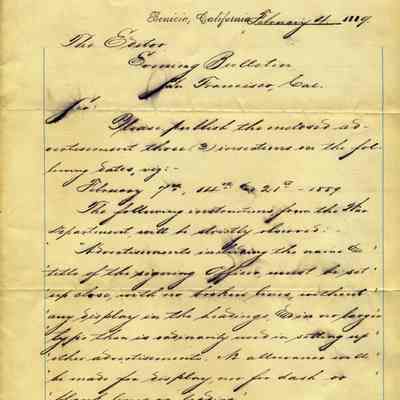 Benicia, California, February 4, 1889.
The Editor
Evening Bulletin
San Francisco, Cal.
Sir:
Please publish the enclosed ad-
vertisement three (3) insertions on the fol-
lowing dates, viz:-
February 7th, 14th & 21st - 1889
The following instructions from the War
Department will be strictly observed:-
"Advertisements including the name &
"title of the signing Officer must be set
"up close, with no broken lines, without
"any display in the headings & in no larger
"type than is ordinarily used in setting up
"other advertisements. No allowance will
"be made for display, nor for dash or
"blank lines or leading."